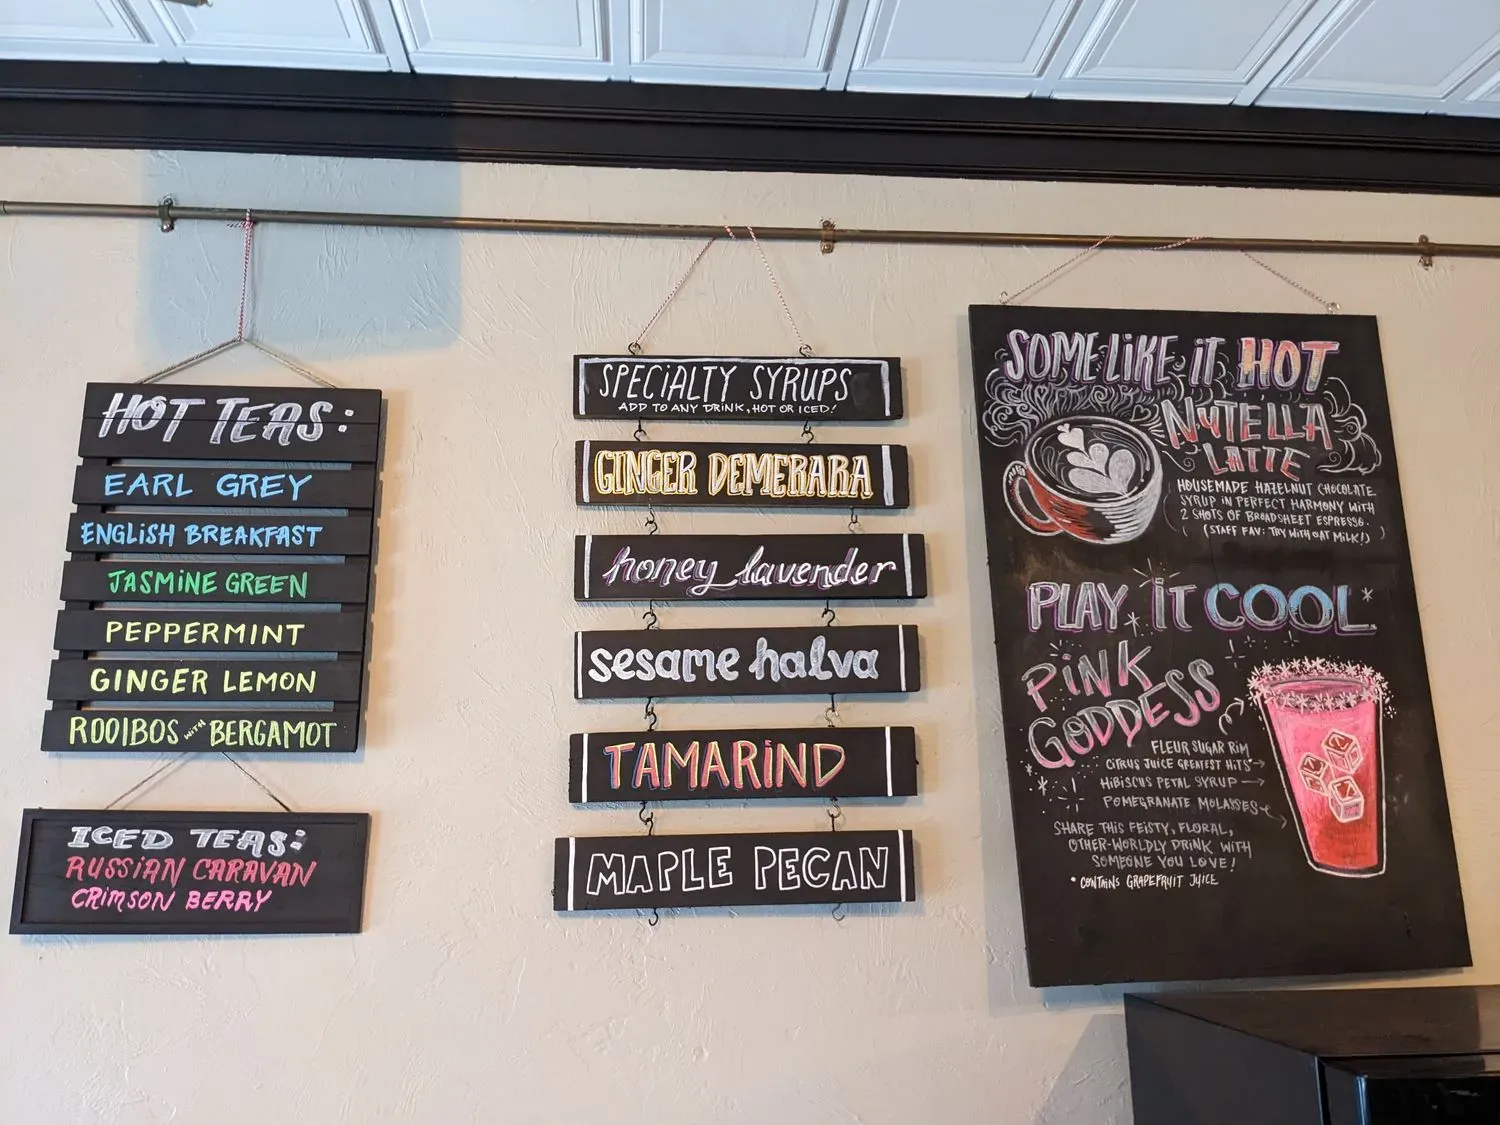 HOT TEAS:
EARL GREY
ENGLISH BREAKFAST
JASMINE GREEN
PEPPERMINT
GINGER LEMON
ROOIBOS WITH BERGAMOT
ICED TEAS:
RUSSIAN CARAVAN
CRIMSON BERRY
SPECIALTY SYRUPS
ADD TO ANY DRINK, HOT OR ICED!
GINGER DEMERARA
honey lavender
sesame halva
TAMARIND
MAPLE PECAN
SOME LIKE IT HOT
NUTELLA
LATTE
HOUSEMADE HAZELNUT CHOCOLATE
SYRUP IN PERFECT HARMONY WITH
2 SHOTS OF BROADSHEET ESPRESSO.
(STAFF FAV: TRY WITH OAT MILK!)
PLAY IT COOL
PINK
GODDESS
FLEUR SUGAR RIM
CITRUS JUICE GREATEST HITS
HIBISCUS PETAL SYRUP
POMEGRANATE MOLASSES
SHARE THIS FEISTY, FLORAL,
OTHER-WORLDLY DRINK WITH
SOMEONE YOU LOVE!
* CONTAINS GRAPEFRUIT JUICE